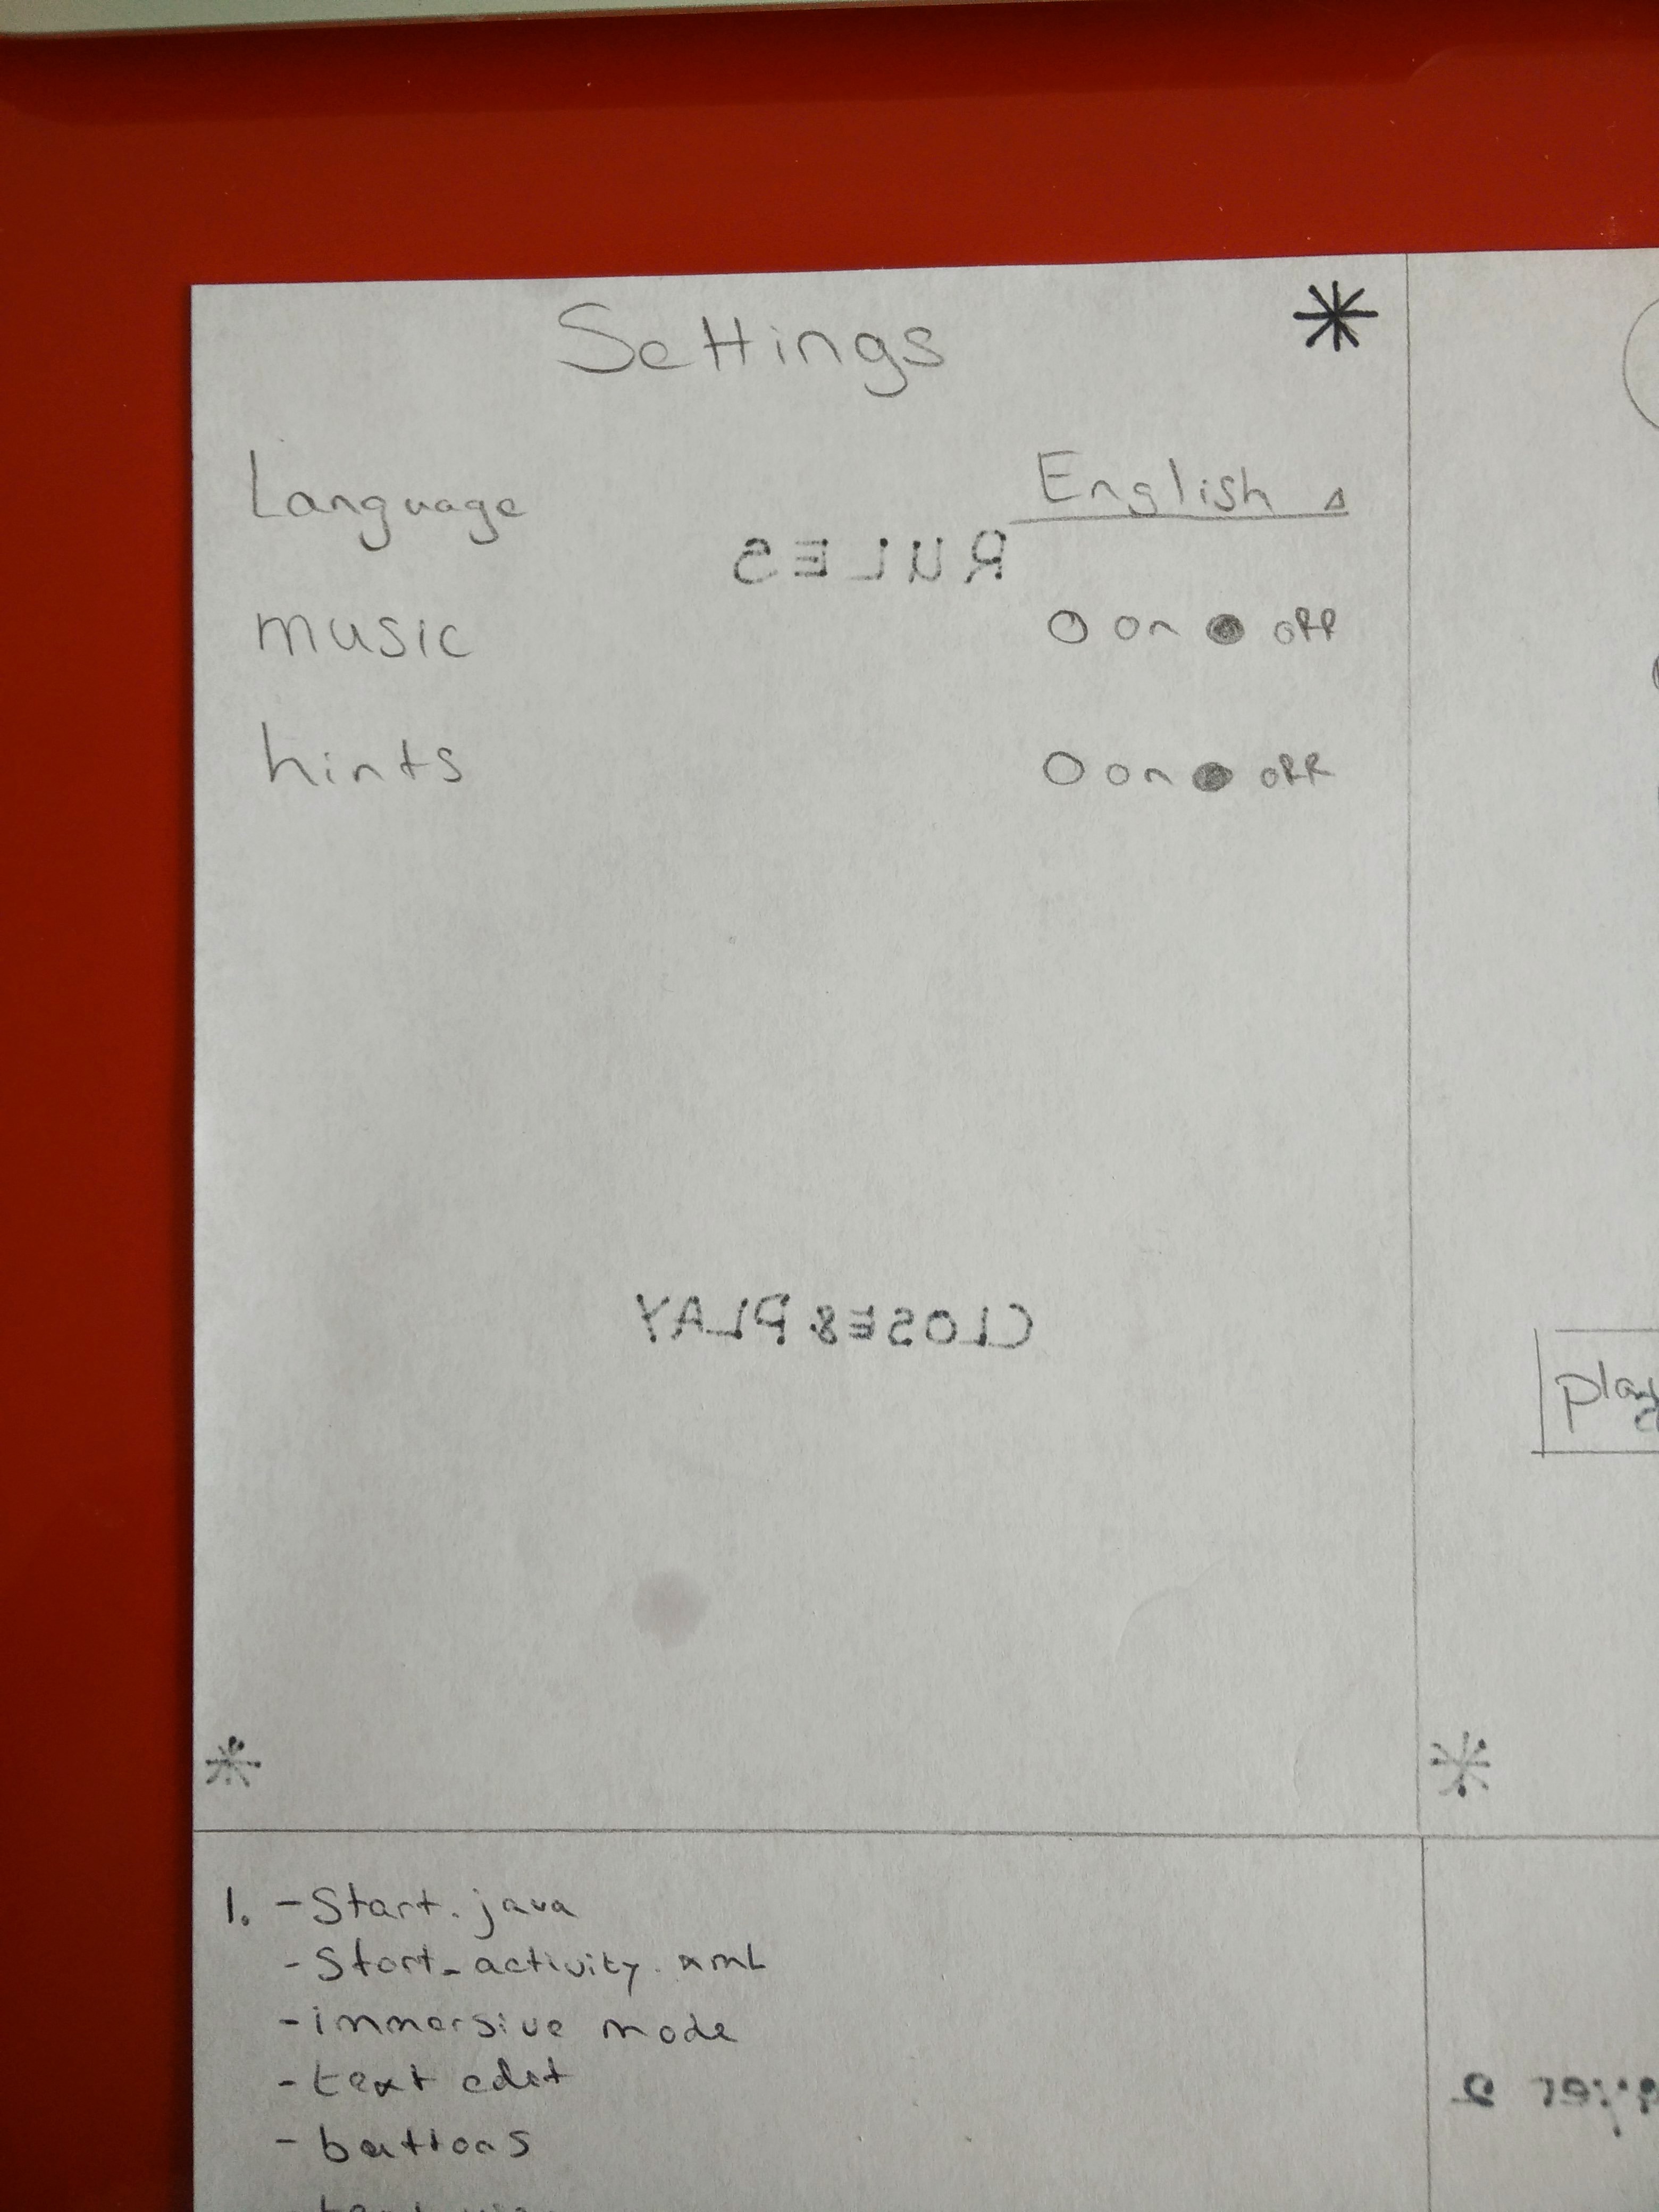 Settings
Language English
RULES
music on off
hints on off
CLOSE & PLAY
play
1. - Start.java
- Start_activity.xml
- immersive mode
- text edit
- buttons